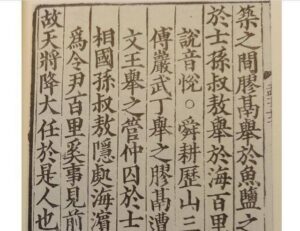 築之間膠鬲舉於魚鹽之
於士孫叔敖舉於海百里
說音悅○舜耕歷山三
傅巖武丁舉之膠鬲遭
文王舉之管仲囚於士
相國孫叔敖隱處海濱
爲令尹百里奚事見前
故天將降大任於是人也